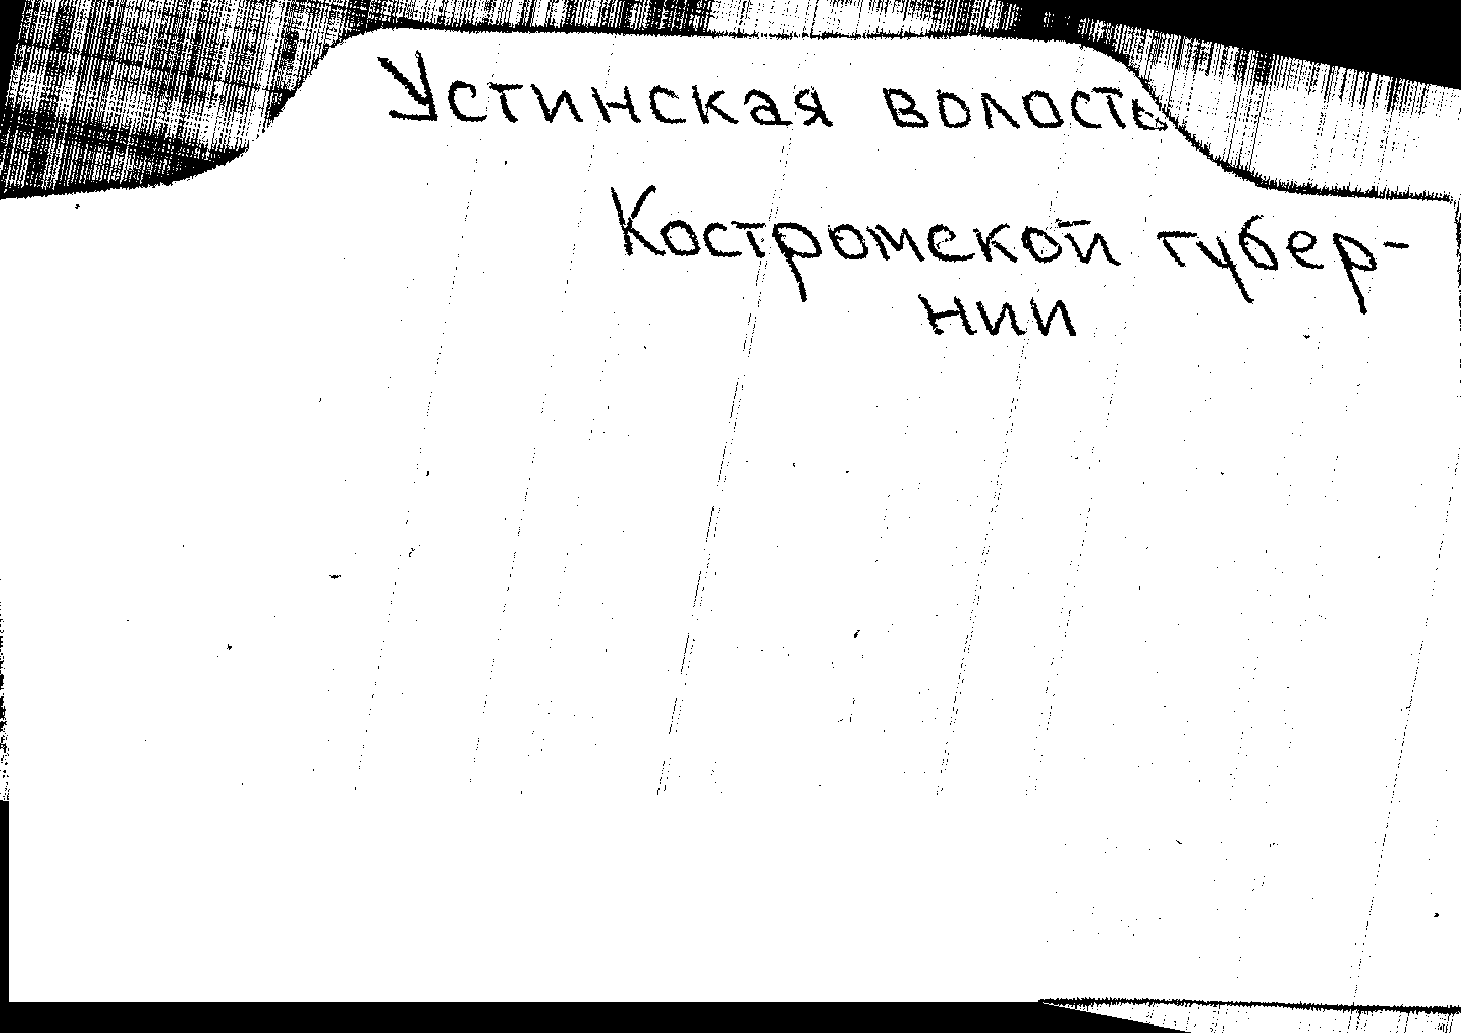 Устинская волость
Костромской губер-
нии